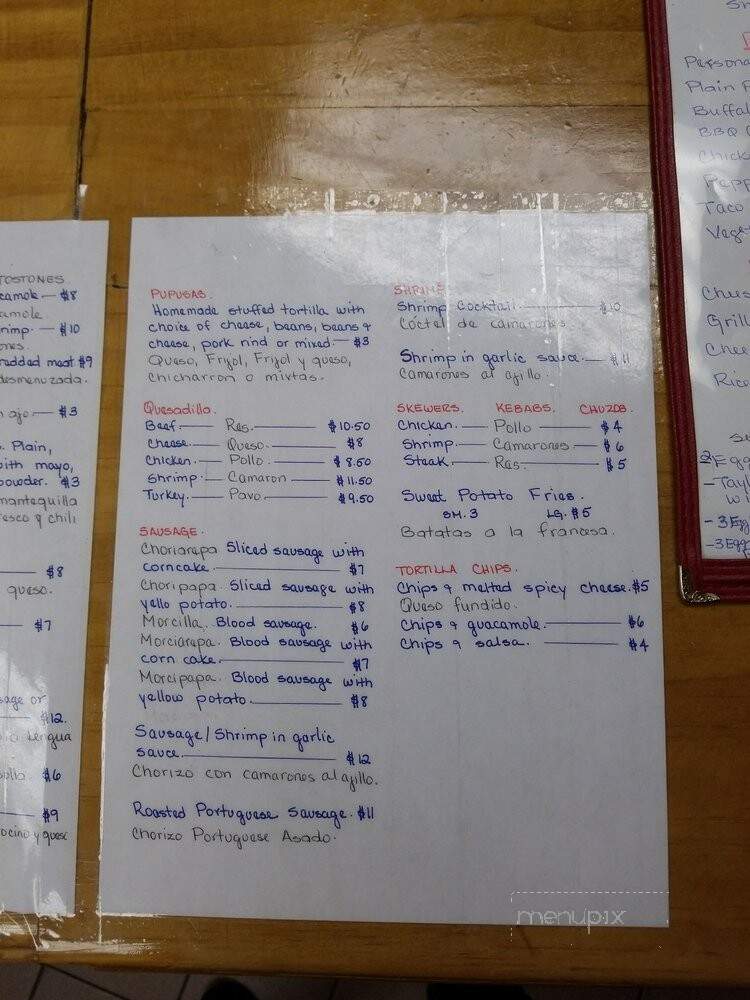 TOSTONES
camole — $8
camole
rimp. — $10
ones.
redded meat $9
desmenuzada.
n ajo — $3
. Plain,
with mayo,
powder. $3
mantequilla
resco y chili
$8
queso.
$7
sage or
$12.
Lengua
$6
$9
ocino y queso
PUPUSAS.
Homemade stuffed tortilla with
choice of cheese, beans, beans &
cheese, pork rind or mixed. — $3
Queso, Frijol, Frijol y queso,
chicharron o mixtas.
Quesadilla.
Beef. — Res. — $10.50
Cheese. — Queso. — $8
Chicken. — Pollo. — $8.50
Shrimp. — Camaron — $11.50
Turkey. — Pavo. — $9.50
SAUSAGE.
Choriarepa Sliced sausage with
corncake. — $7
Choripapa. Sliced sausage with
yello potato. — $8
Morcilla. Blood sausage. $6
Morciarepa. Blood sausage with
corn cake. — $7
Morcipapa. Blood sausage with
yellow potato. — $8
Sausage/Shrimp in garlic
sauce. — $12
Chorizo con camarones al ajillo.
Roasted Portuguese Sausage. $11
Chorizo Portuguese Asado.
SHRIMP
Shrimp Cocktail. — $10
Cóctel de camarones
Shrimp in garlic sauce. — $11
Camarones al ajillo.
SKEWERS. KEBABS. CHUZOS.
Chicken. — Pollo — $4
Shrimp. — Camarones. — $6
Steak. — Res. — $5
Sweet Potato Fries.
SM. 3 LG. $5
Batatas a la francesa.
TORTILLA CHIPS.
Chips & melted spicy cheese. $5
Queso fundido.
Chips & guacamole. — $6
Chips & salsa. — $4
Persona
Plain P
Buffal
BBQ C
Chick
Pepp
Taco
Vege
Chees
Grill
Chee
Rico
2 Egg
- Tayl
wi
- 3 Egg
- 3 Egg
menupix